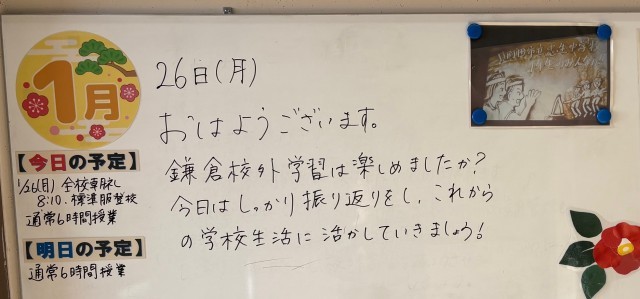 1月
26日(月)
おはようございます。
鎌倉校外学習は楽しめましたか?
今日はしっかり振り返りをし、これから
の学校生活に活かしていきましょう!
【今日の予定】
1/26(月) 全校朝礼
8:10. 標準服登校
通常6時間授業
【明日の予定】
通常6時間授業